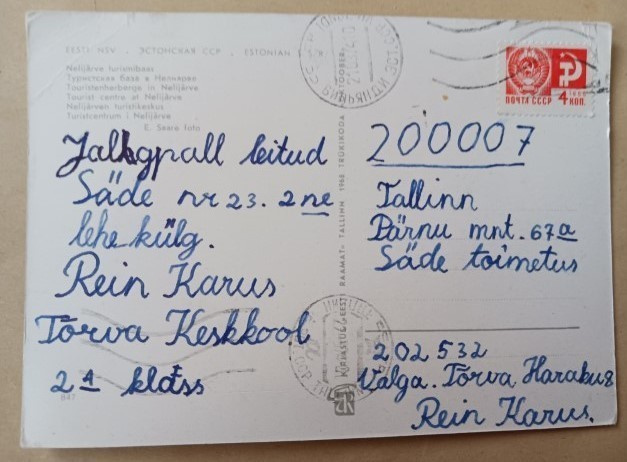 EESTI NSV . ЭСТОНСКАЯ ССР . ESTONIAN
Nelijärve turismibaas
Туристская база в Нелиярве
Touristenherberge in Nelijärve
Tourist centre at Nelijärve
Nelijärven turistikeskus
Turistcentrum i Nelijärve
E. Saare foto
Jalkgpall leitud
Säde nr 23. 2ne
lehe külg.
Rein Karus
Tõrva Keskkool
2 A klass
847
KIRJASTUS EESTI RAAMAT TALLINN 1968 TRÜKIKODA OKTOOBER
ПОЧТА СССР 4 КОП.
200007
Tallinn
Pärnu mnt. 67a
Säde toimetus
202532
Valga. Tõrva Haraku 8
Rein Karus.